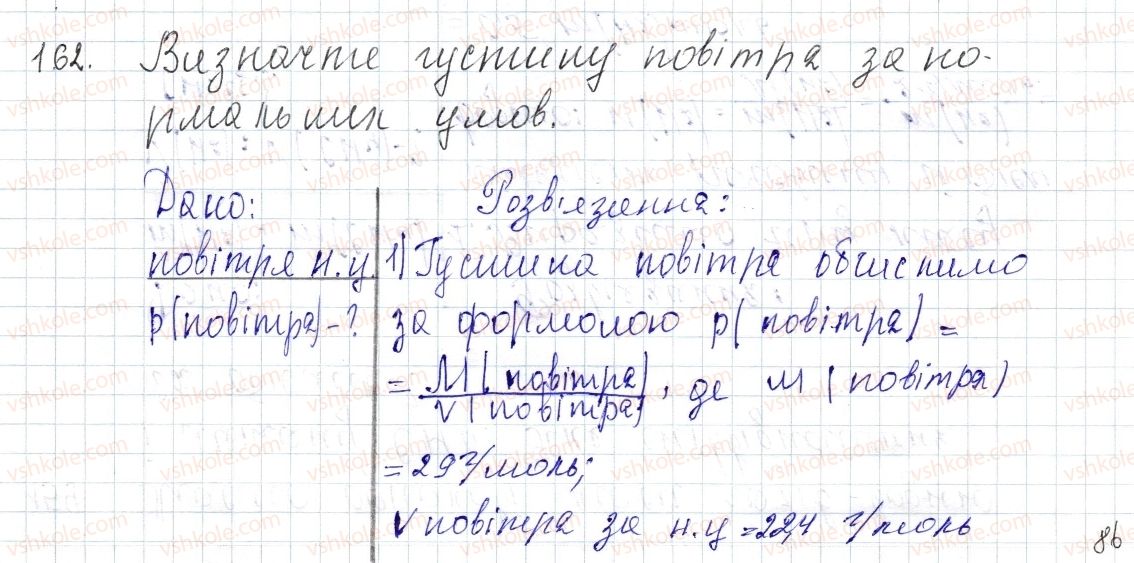 162. Визначте густину повітря за но-
рмальних умов.
Дано:
повітря н.у.
ρ(повітря)-?
Розв'язання:
1) Густина повітря обчислимо
за формолою ρ(повітря) =
= M(повітря)/V(повітря), де M(повітря)
= 29 г/моль;
V повітря за н.у = 22,4 г/моль
86